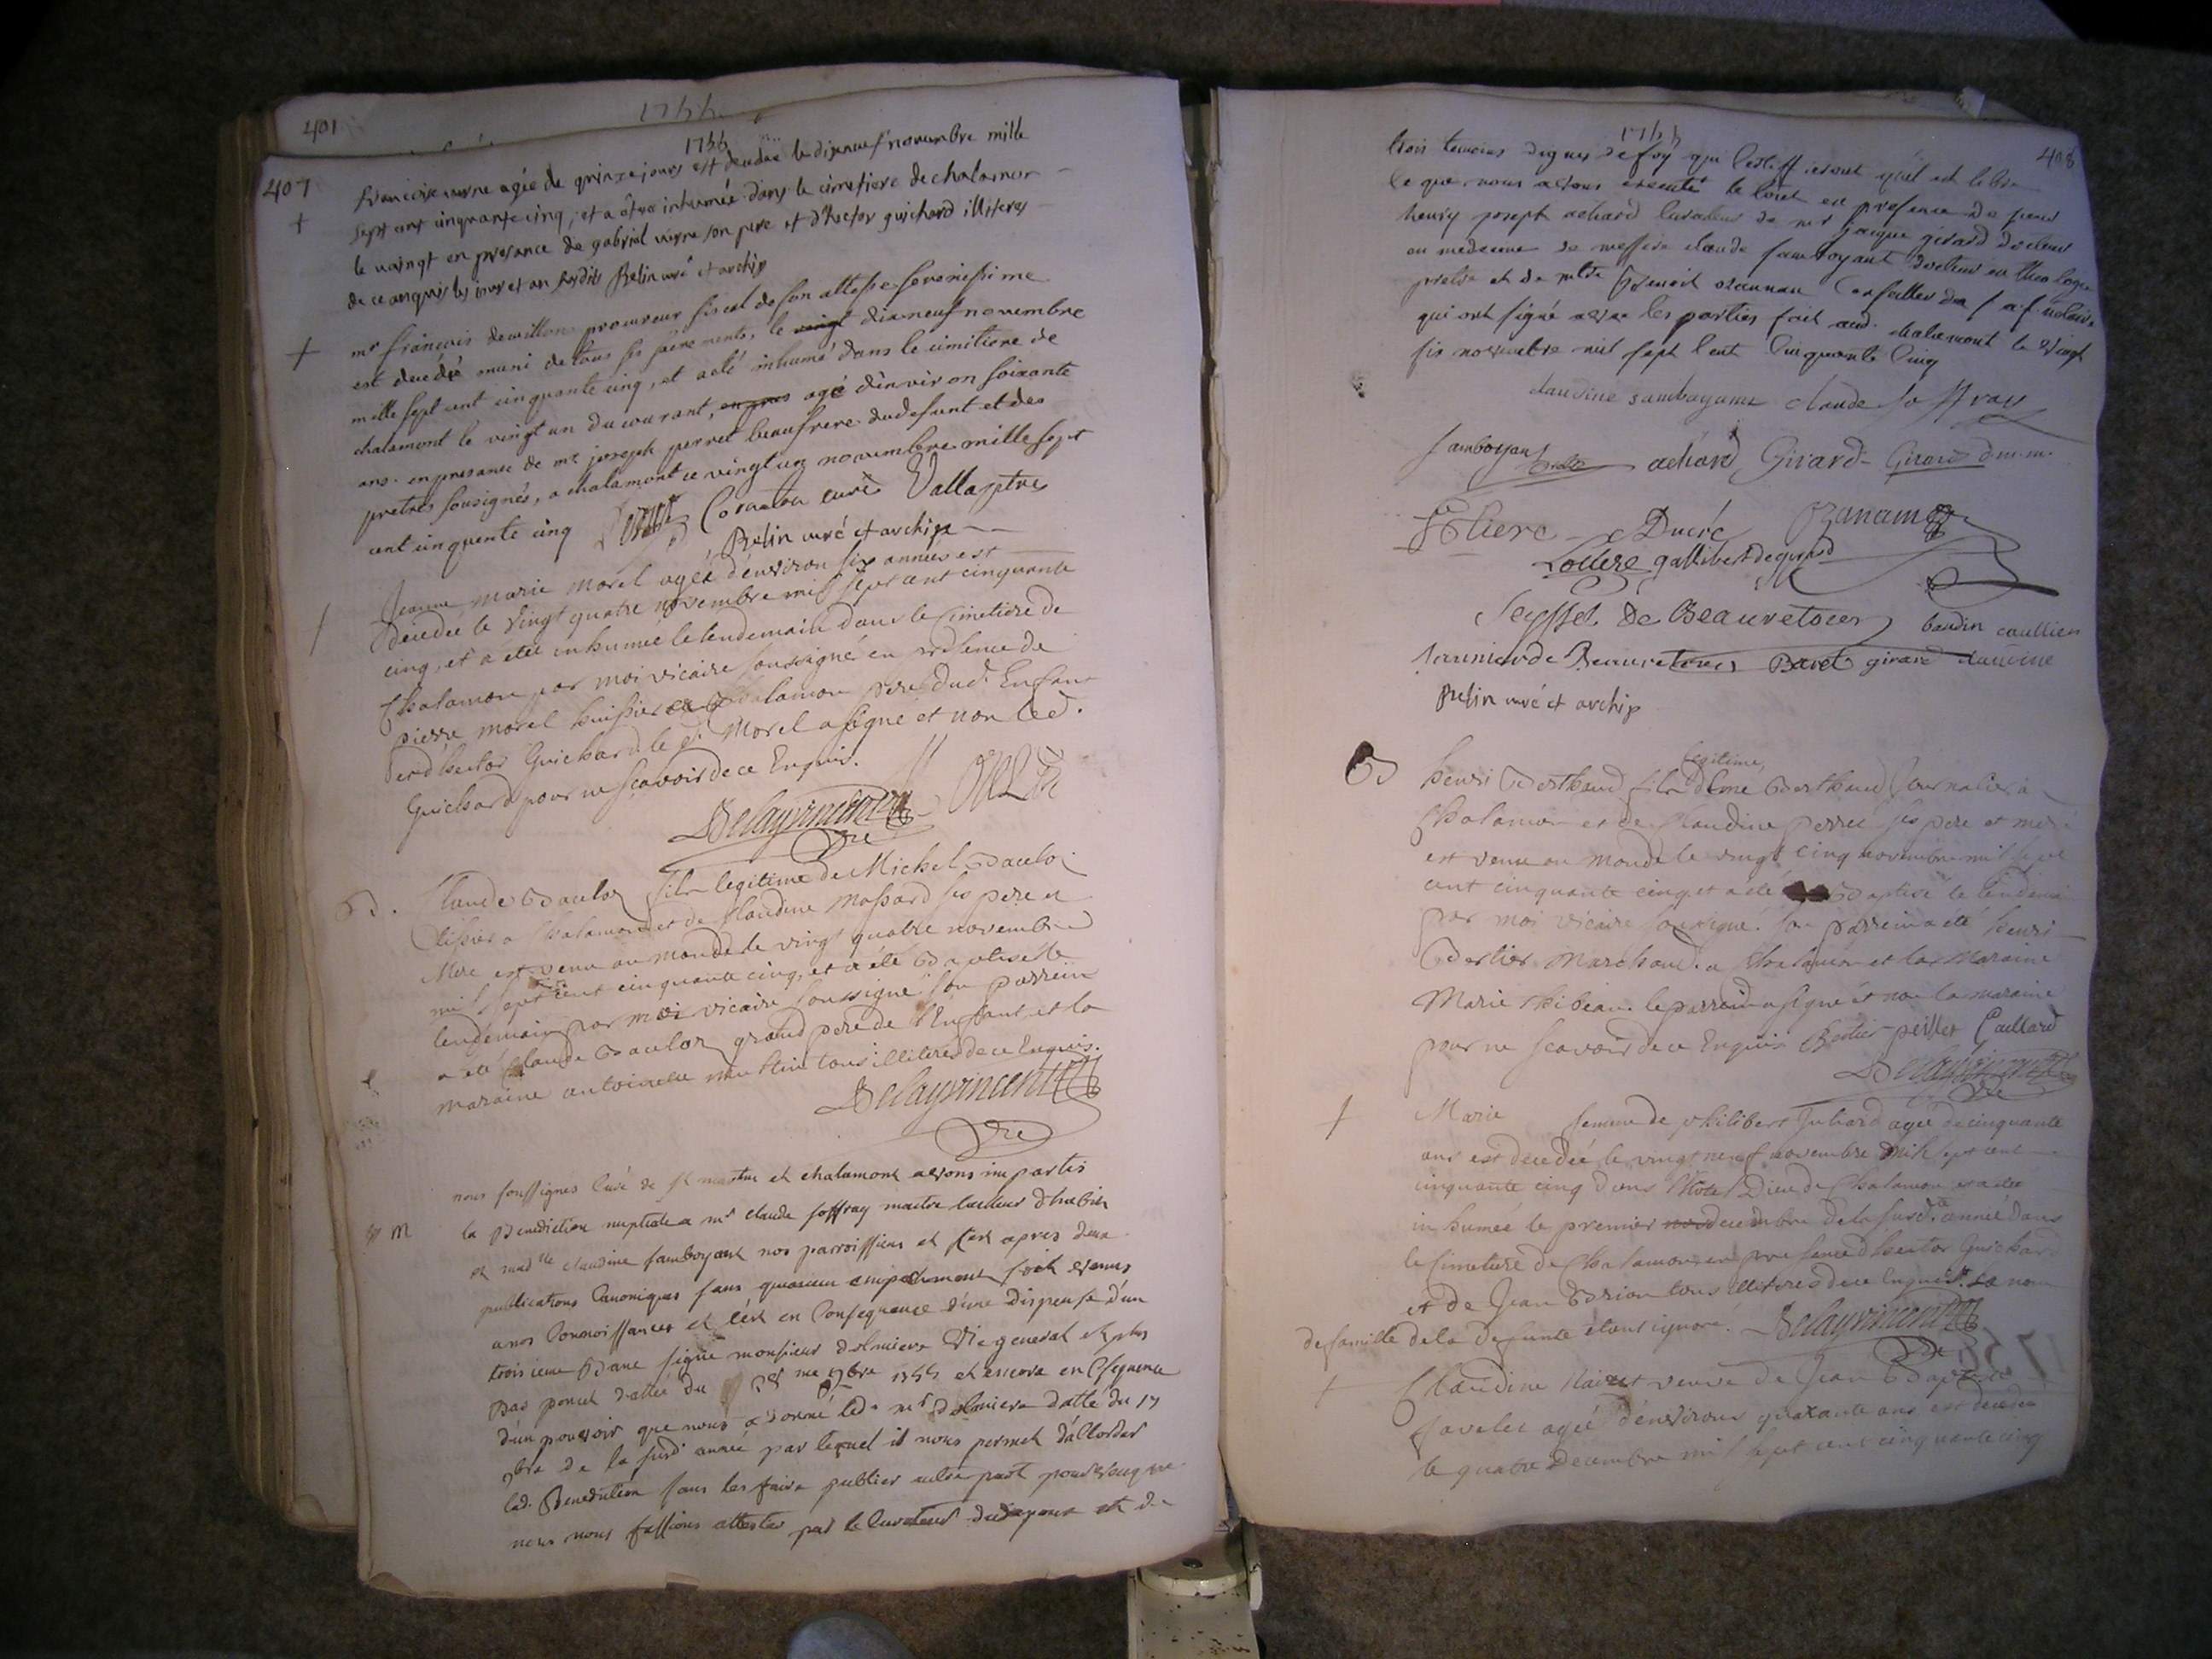 401
1755
1755
407
francoise verne agée de quinze jours est deudée le dixneuf novembre mille
sept cent cinquante cinq, et a être inhumée dans le cimetiere de chalamon
le vaingt en presance de gabriel verne son pere et d'hector guichard illiteres
de ce enquis les jour et an susdits Relin curé et archip
mr françois dewillon procureur fiscal de son altesse serenissime
est decédé muni de tous ses sacrements, le vingt dixneuf novembre
mille sept cent cinquante cinq, et a été inhumé dans le cimitiere de
chalamont le vingt un du courant, agé d'environ soixante
ans. en presance de mr joseph perret beaufrere dudefunt et des
pretres sousignés, a chalamont ce vingt un novembre mille sept
cent cinquente cinq curé Vallaptre
Relin curé et archip
Jeanne Marie Morel agée d'environ six années est
décédée le vingt quatre novembre mil sept cent cinquante
cinq, et a eté inhumée le lendemain dans le Cimetiere de
Chalamon par moi vicaire soussigné en présence de
pierre morel huissier a Chalamon pere dud. Enfant
et d'hector Guichard le d. Morel a signé et non led.
Guichard pour ne sçavoir de ce Enquis.
Delayvincent Morel
vre
B.
Claude Baulon fils legitime de Michel Baulon
tissier a Chalamon et de Claudine Massard ses pere et
Mere est venu au monde le vingt quatre novembre
mil sept cent cinquante cinq, et a été Baptisé le
lendemain par moi vicaire soussigné son parrein
a été Claude Baulon grand pere de l'Enfant et la
maraine antoinette tous illiteres de ce Enquis.
Delayvincent
vre
nous soussignés Curé de st martin et chalamont avons impartis
M
la Benediction nuptiale a mr claude soffray maitre tailleur d'habits
et madlle claudine samboyant nos parroissiens et c'est apres deux
publications Canoniques sans qu'aucun empechement soit venus
a nos Connoissances et c'est en Consequence d'une dispense d'un
troisieme Banc signée monsieur dolmiera Vic general et plus
bas poncet dattée du 9bre 1755 et encore en Csequence
d'un pouvoir que nous a donné led. mr dolmiera datté du 17
9bre de la susd. année par lequel il nous permet d'accorder
lad. Benediction sans les faire publier autre part pourveu que
nous nous fassions attester par le curateur dudepoux et de
1755
408
trois temoins dignes de foy qui certiffieront qu'il est libre
ce que nous avons executé le tout en presence de sieur
henry joseph achard curateur de mr jacque girard docteur
en medecine de messire claude samboyant docteur en theologie
pretre et de mtre Benoit ozanam Conseiller da s.a.s. notaire
qui ont signé avec les parties fait aud. chalamont le vingt
six novembre mil sept Cent Cinquante Cinq
claudine samboyant claude soffray
samboyant ptre achard Girard Girard d.m.m.
Ducré Ozanam
gallibert de girard
Seyssel De Beauretour baudin caullier
de Beauretour Baret girard claudine
Relin curé et archip
B
legitime
henri Berthaud fils d'Emé Berthaud Journalier à
Chalamon et de Claudine perret ses pere et mere
est venu au monde le vingt cinq novembre mil sept
cent cinquante cinq et a été Baptisé le lendemain
par moi vicaire soussigné. son parrein a été henri
Bertier Marchand a Chalamon et la Maraine
Marie thibeau. le parrein a signé et non la maraine
pour ne scavoir de ce Enquis Bertier peillet Caillard
Delayvincent
vre
Marie femme de philibert Juhard agée de cinquante
ans est decedée le vingt neuf novembre mil sept cent
cinquante cinq dans l'hotel Dieu de Chalamon et a été
inhumée le premier decembre de la susd. année dans
le Cimetiere de Chalamon en presence d'hector Guichard
et de Jean Brion tous illiteres de ce Enquis. le nom
de famille de la defunte étant ignoré. Delayvincent
vre
Claudine Navet veuve de Jean Baptiste
Javelet agée d'environs quarante ans est decedée
le quatre Decembre mil sept cent cinquante cinq